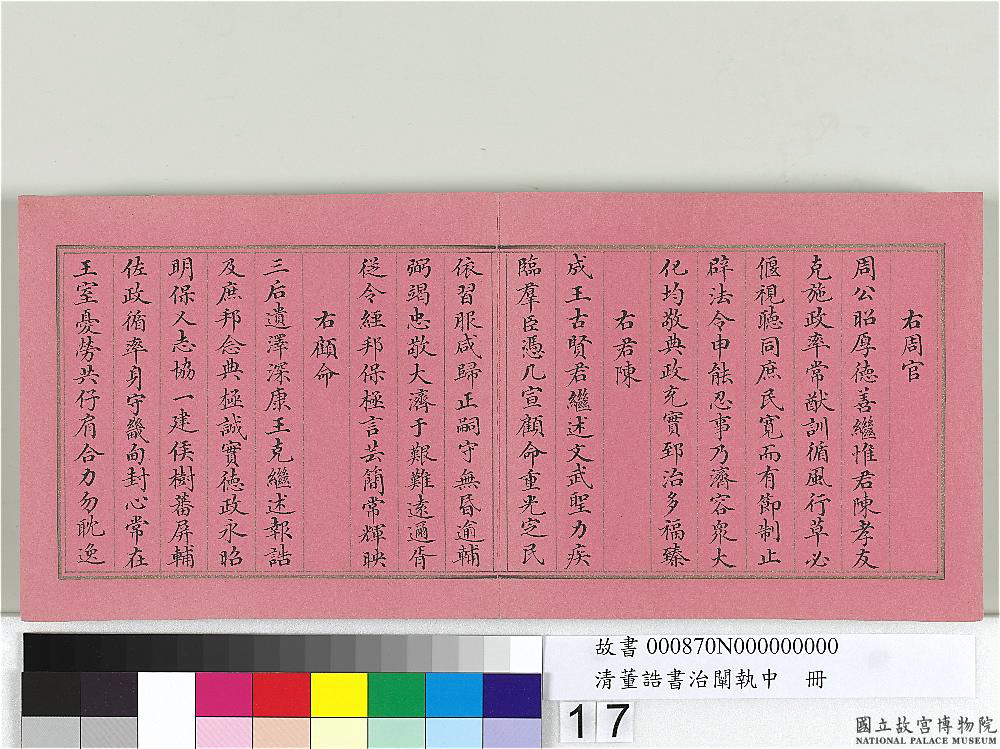 右周官
周公昭厚德善繼惟君陳孝友
克施政率常猷訓循風行草必
偃視聽同庶民寬而有節制止
辟法令申能忍事乃濟容衆大
化均敬典政充實郅治多福臻
右君陳
成王古賢君繼述文武聖力疾
臨羣臣憑几宣顧命重光定民
依習服咸歸正嗣守無昏逾輔
弼竭忠敬大濟于艱難遠邇胥
從令經邦保極言芸簡常輝映
右顧命
三后遺澤深康王克繼述報誥
及庶邦念典極誠實德政永昭
明保乂志協一建侯樹蕃屏輔
佐政循率身守畿甸封心常在
王室憂勞共仔肩合力勿耽逸
故書 000870N000000000
清董誥書治闡執中 冊
17
國立故宮博物院
NATIONAL PALACE MUSEUM